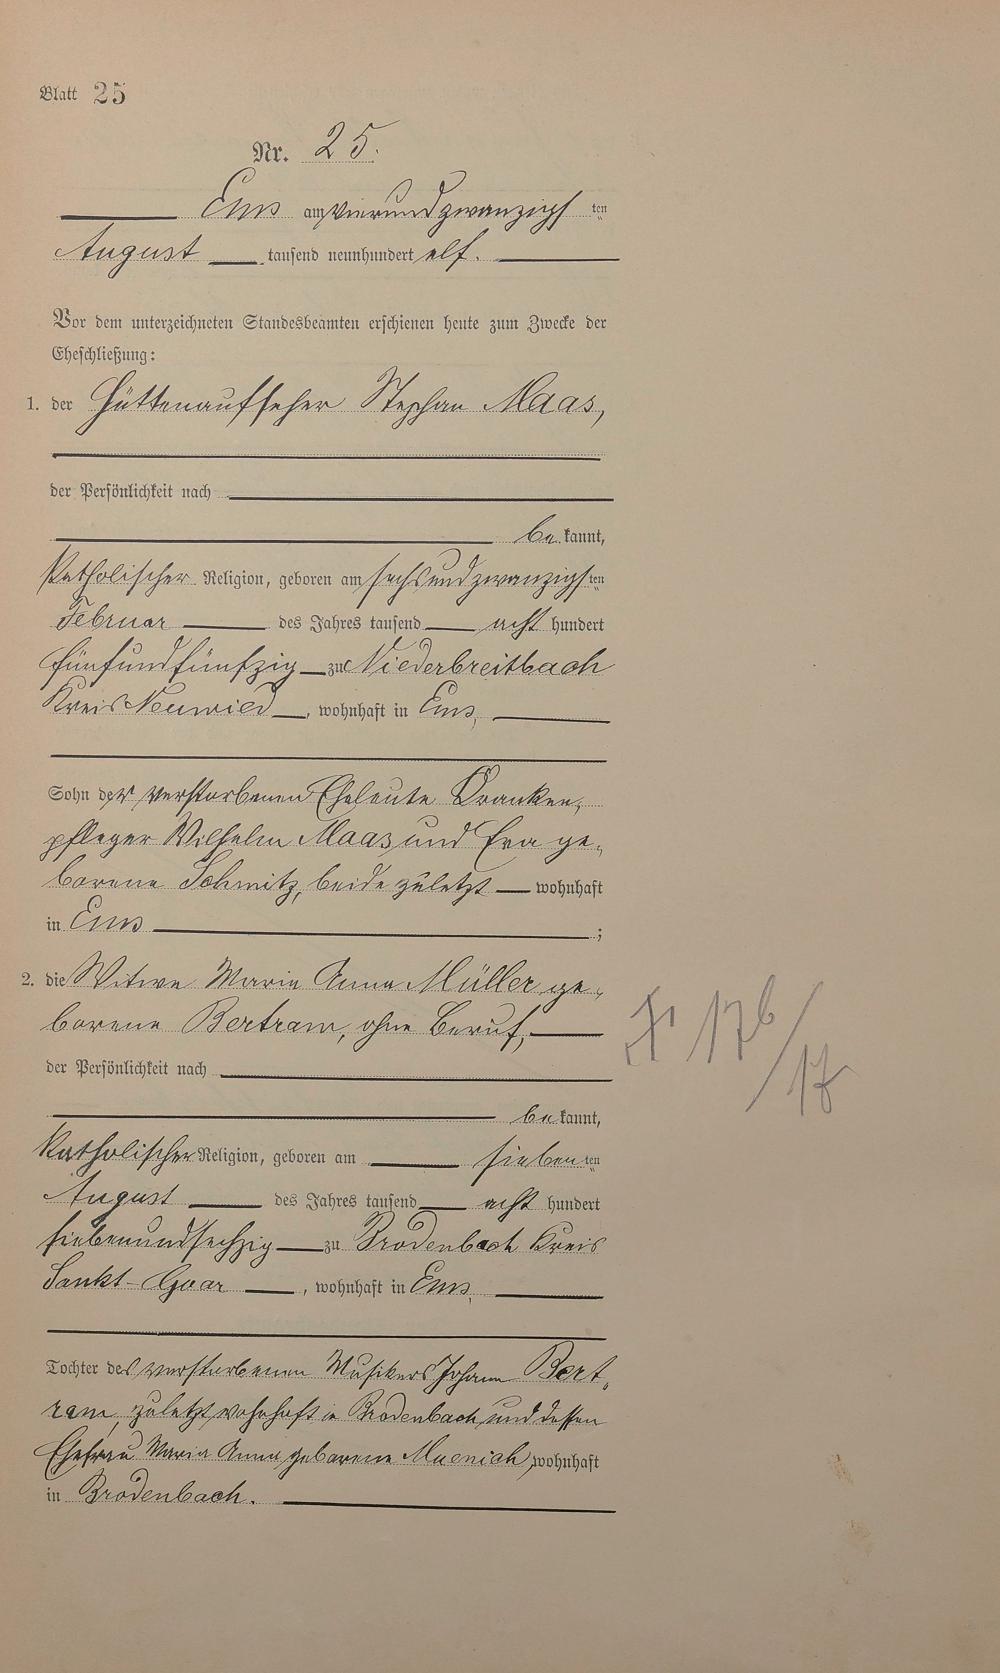 Blatt 25
Nr. 25.
Ems am vierundzwanzigsten
August tausend neunhundert elf.
Vor dem unterzeichneten Standesbeamten erschienen heute zum Zwecke der
Eheschließung:
1. der Hüttenaufseher Stephan Maas,
der Persönlichkeit nach
bekannt,
katholischer Religion, geboren am sechsundzwanzigsten
Februar des Jahres tausend acht hundert
fünfundfünfzig zu Niederbreitbach
Kreis Neuwied, wohnhaft in Ems,
Sohn der verstorbenen Eheleute Kranken-
pfleger Wilhelm Maas und Eva ge-
borene Schmitz, beide zuletzt wohnhaft
in Ems;
2. die Witwe Maria Anna Müller ge-
borene Bertram, ohne Beruf,
der Persönlichkeit nach
bekannt,
katholischer Religion, geboren am siebenten
August des Jahres tausend acht hundert
siebenundsechzig zu Brodenbach Kreis
Sankt-Goar, wohnhaft in Ems,
Tochter des verstorbenen Musikers Johann Bert-
ram, zuletzt wohnhaft in Brodenbach und dessen
Ehefrau Maria Anna geborene Muenich, wohnhaft
in Brodenbach.
176/17